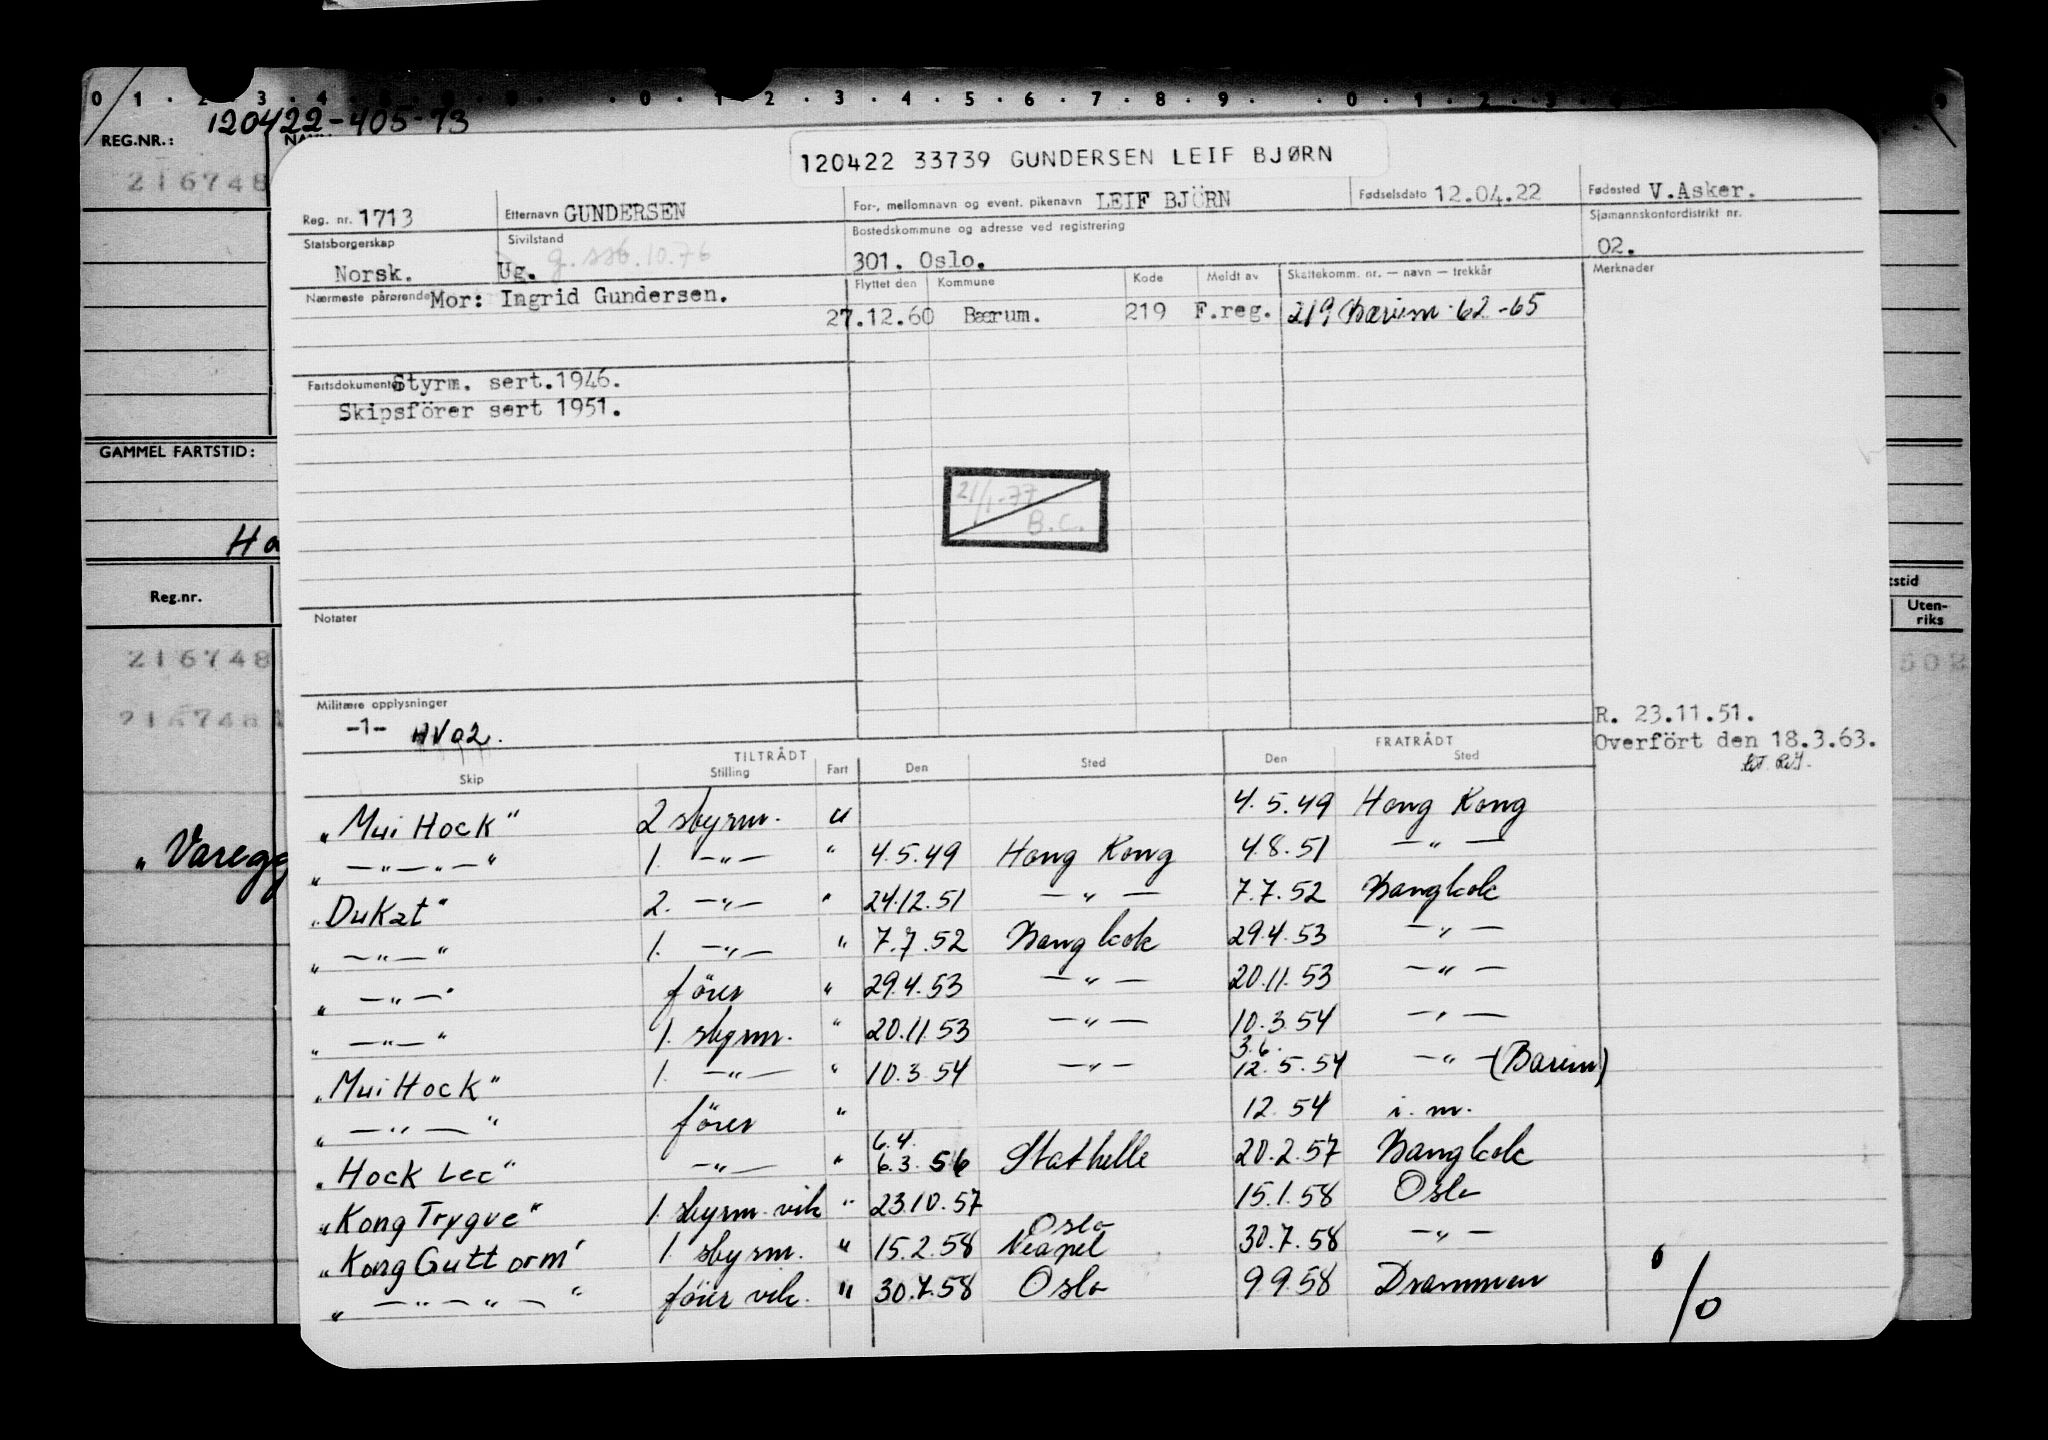 0 1 . 2 . 3 . 4 . 0 . 1 . 2 . 3 . 4 . 5 . 6 . 7 . 8 . 9 . 0 . 1 . 2 . 3
REG.NR.: 120422-405-73
216748
120422 33739 GUNDERSEN LEIF BJØRN
Reg. nr. 1713 Etternavn GUNDERSEN For-, mellomnavn og event. pikenavn LEIF BJÖRN Fødselsdato 12.04.22 Fødested V.Asker.
Statsborgerskap Norsk. Sivilstand Ug. g. ssb.10.76 Bostedskommune og adresse ved registrering 301. Oslo. Sjømannskontordistrikt nr. 02.
Nærmeste pårørende Mor: Ingrid Gundersen. Flyttet den Kommune Kode Meldt av Skattekomm. nr. — navn — trekkår Merknader
27.12.60 Bærum. 219 F.reg. 219 Bærum 62-65
Fartsdokumenter Styrm. sert.1946.
Skipsförer sert 1951.
GAMMEL FARTSTID:
21/1-77 B.C.
Ha
Reg.nr.
tstid
Uten-
riks
Notater
216748
502
216748
Militære opplysninger
-1- HV02.
R. 23.11.51.
Overfört den 18.3.63.
TILTRÅDT FRATRÅDT
Skip Stilling Fart Den Sted Den Sted
"Mui Hock" 2 styrm. u 4.5.49 Hong Kong
" — " — " — " 1. — " — " 4.5.49 Hong Kong 4.8.51 — " —
"Varegg
"Dukat" 2. — " — " 24.12.51 — " — 7.7.52 Bangkok
" — " — " 1. — " — " 7.7.52 Bangkok 29.4.53 — " —
" — " — " förer " 29.4.53 — " — 20.11.53 — " —
" — " — " 1. styrm. " 20.11.53 — " — 10.3.54 — " —
3.6.
"Mui Hock" 1. — " — " 10.3.54 — " — 12.5.54 — " — (Barim)
" — " — " förer " 12.54 i. m.
6.4.
"Hock Lee" — " — " 6.3.56 Stathelle 20.2.57 Bangkok
"Kong Trygve" 1. styrm. vik " 23.10.57 15.1.58 Oslo
Oslo
"Kong Guttorm" 1. styrm. " 15.2.58 Neapel 30.7.58 — " —
" — " — " — " förer vik. " 30.7.58 Oslo 9.9.58 Drammen
/0